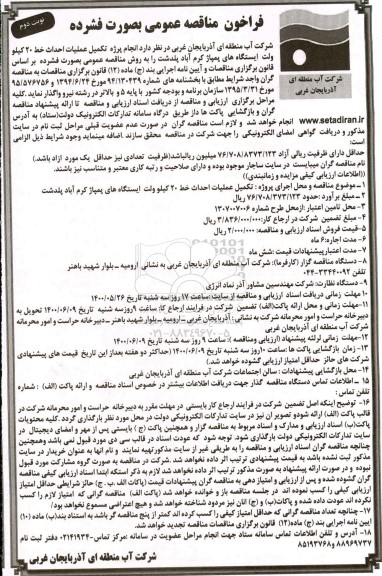 نوبت دوم
فراخوان مناقصه عمومی بصورت فشرده
شرکت آب منطقه ای
آذربایجان غربی
شرکت آب منطقه ای آذربایجان غربی در نظر دارد انجام پروژه تکمیل عملیات احداث خط ۲۰ کیلو
ولت ایستگاه های پمپاژ کرم آباد پلدشت را به روش مناقصه عمومی بصورت فشرده بر اساس
قانون برگزاری مناقصات و آیین نامه اجرایی بند (ج) ماده (۱۲) قانون برگزاری مناقصات به مناقصه
گران واجد شرایط مطابق با بخشنامه های شماره
سازمان برنامه و بودجه کشور با پایه ۵ و بالاتر در رشته نیرو واگذار نماید. کلیه
مراحل برگزاری ارزیابی و مناقصه از دریافت اسناد ارزیابی و مناقصه تا ارائه پیشنهاد مناقصه
گران و بازگشایی پاکت ها از طریق درگاه سامانه تدارکات الکترونیک دولت(ستاد) به آدرس
www.setadiran.ir انجام خواهد شد و لازم است مناقصه گران در صورت عدم عضویت قبلی مراحل ثبت نام در سایت
مذکور و دریافت گواهی امضای الکترونیکی را جهت شرکت در مناقصه محقق سازند. اضافه مینماید وجود شرایط ذیل الزامی
است:
حداقل دارای ظرفیت ریالی آزاد ۷۶/۷۰۸/۸۷۳/۱۲۳ میلیون ریال باشد(ظرفیت تعدادی نیز حداقل یک مورد آزاد باشد.)
نام مناقصه گران میبایست در سایت ساجار موجود بوده و دارای صلاحیت و رتبه کاری معتبر و متناسب نیز باشند.
((اطلاعات ارزیابی کیفی مزایده و زمانبندی))
۱- موضوع مناقصه و محل اجرای پروژه : تکمیل عملیات احداث خط ۲۰ کیلو ولت ایستگاه های پمپاژ کرم آباد پلدشت
۲- مبلغ برآورد :حدود ۷۶/۷۰۸/۳۷۳/۱۲۳ ریال
۳- محل تامین اعتبار :ازمحل طرح شماره ۱۳۰۷۰۰۷۰۰۶
۴- مبلغ تضمین شرکت در ارجاع کار: ۳/۸۳۶/۰۰۰/۰۰۰ ریال
۵- قیمت فروش اسناد ارزیابی و مناقصه: ۲/۰۰۰/۰۰۰ ریال
۶- مدت اجاره:۶ ماه
۷- مدت اعتبارپیشنهادات قیمت :شش ماه
۸- دستگاه مناقصه گزار (کارفرما): شرکت آب منطقه ای آذربایجان غربی به نشانی ارومیه ـ بلوار شهید باهنر
تلفن ۰۴۴-۳۳۴۴۰۰۹۲
۹- دستگاه نظارت: شرکت مهندسین مشاور آذر نماد انرژی
۱۰- مهلت زمانی دریافت اسناد ارزیابی و مناقصه از سایت :ساعت ۱۷ روز سه شنبه تاریخ ۱۴۰۰/۰۵/۲۶
۱۱- مهلت زمانی و محل ارائه پاکت(الف) تضمین شرکت در فرایند ارجاع کا: ساعت ۹ روز سه شنبه تاریخ ۱۴۰۰/۰۶/۰۹ تحویل به
دبیرخانه حراست و امور محرمانه شرکت به نشانی : آذربایجان غربی ـ ارومیه ـ بلوار شهید باهنر ـ دبیرخانه حراست و امور محرمانه
شرکت آب منطقه ای آذربایجان غربی
۱۲- مهلت زمانی ارائه پیشنهاد (ارزیابی ومناقصه): ساعت ۹ روز سه شنبه تاریخ ۱۴۰۰/۰۶/۰۹
۱۳- زمان بازگشایی پاکت ها :ساعت ۱۰روز سه شنبه تاریخ ۱۴۰۰/۰۶/۰۹ (حداکثر دو هفته بعداز این تاریخ قیمت های پیشنهادی
شرکت های حائز حداقل امتیاز ارزیابی گشوده خواهد شد.)
۱۴- محل بازگشایی پیشنهادات : سالن اجتماعات شرکت آب منطقه ای آذربایجان غربی
۱۵ ـ اطلاعات تماس دستگاه مناقصه گذار جهت دریافت اطلاعات بیشتر در خصوص اسناد مناقصه و ارائه پاکت (الف) : شماره
تلفن تماس :
۱۶- توضیح اینکه اصل تضمین شرکت در فرایند ارجاع کار بایستی در مهلت مقرر به دبیرخانه حراست و امور محرمانه شرکت در
قالب پاکت (الف) ارائه شودو تصویر آن نیز در سایت تدارکات الکترونیکی دولت در محل مورد نظر بارگذاری گردد. کلیه محتویات
پاکت(ب) اسناد ارزیابی و مدارک و اسناد مربوط به مناقصه گزار و همچنین پاکت (ج) بایستی پس از مهر و امضای دیجیتال در
سایت تدارکات الکترونیکی دولت بارگذاری شود. توجه شود که عودت اسناد در قالب سی دی مورد قبول نمی باشد وهمچنین
چنانچه مناقصه گران اسناد ارزیابی و مناقصه را به طریقی غیر از سایت مذکورتهیه نمایند و نام آنها به عنوان خریدار در سایت
مذکور ثبت نشده باشد به قیمت پیشنهادی ترتیب اثر داده نخواهد شد. شرکت در مناقصه به صورت گروه مشارکت مورد قبول
نبوده و در صورت ارائه پیشنهاد به صورت مذکور ترتیب اثر داده نخواهد شد.
۱۷- چنانچه تعداد مناقصه گرانی که حداقل امتیاز کیفی را کسب کرده اند کمتر از پنج مناقصه گر باشد به استناد بند(ب) ماده (۱۰)
آیین نامه اجرایی بند (ج) ماده(۱۲) قانون برگزاری مناقصات مناقصه تجدید خواهد شد.
۱۸- آدرس و تلفن اطلاعات تماس سامانه ستاد جهت انجام مراحل عضویت در سامانه :مرکز تماس:۰۲۱۴۱۹۳۴ دفتر ثبت نام
۸۸۹۶۹۷۳۷ و ۸۵۱۹۳۷۶۸
شرکت آب منطقه ای آذربایجان غربی